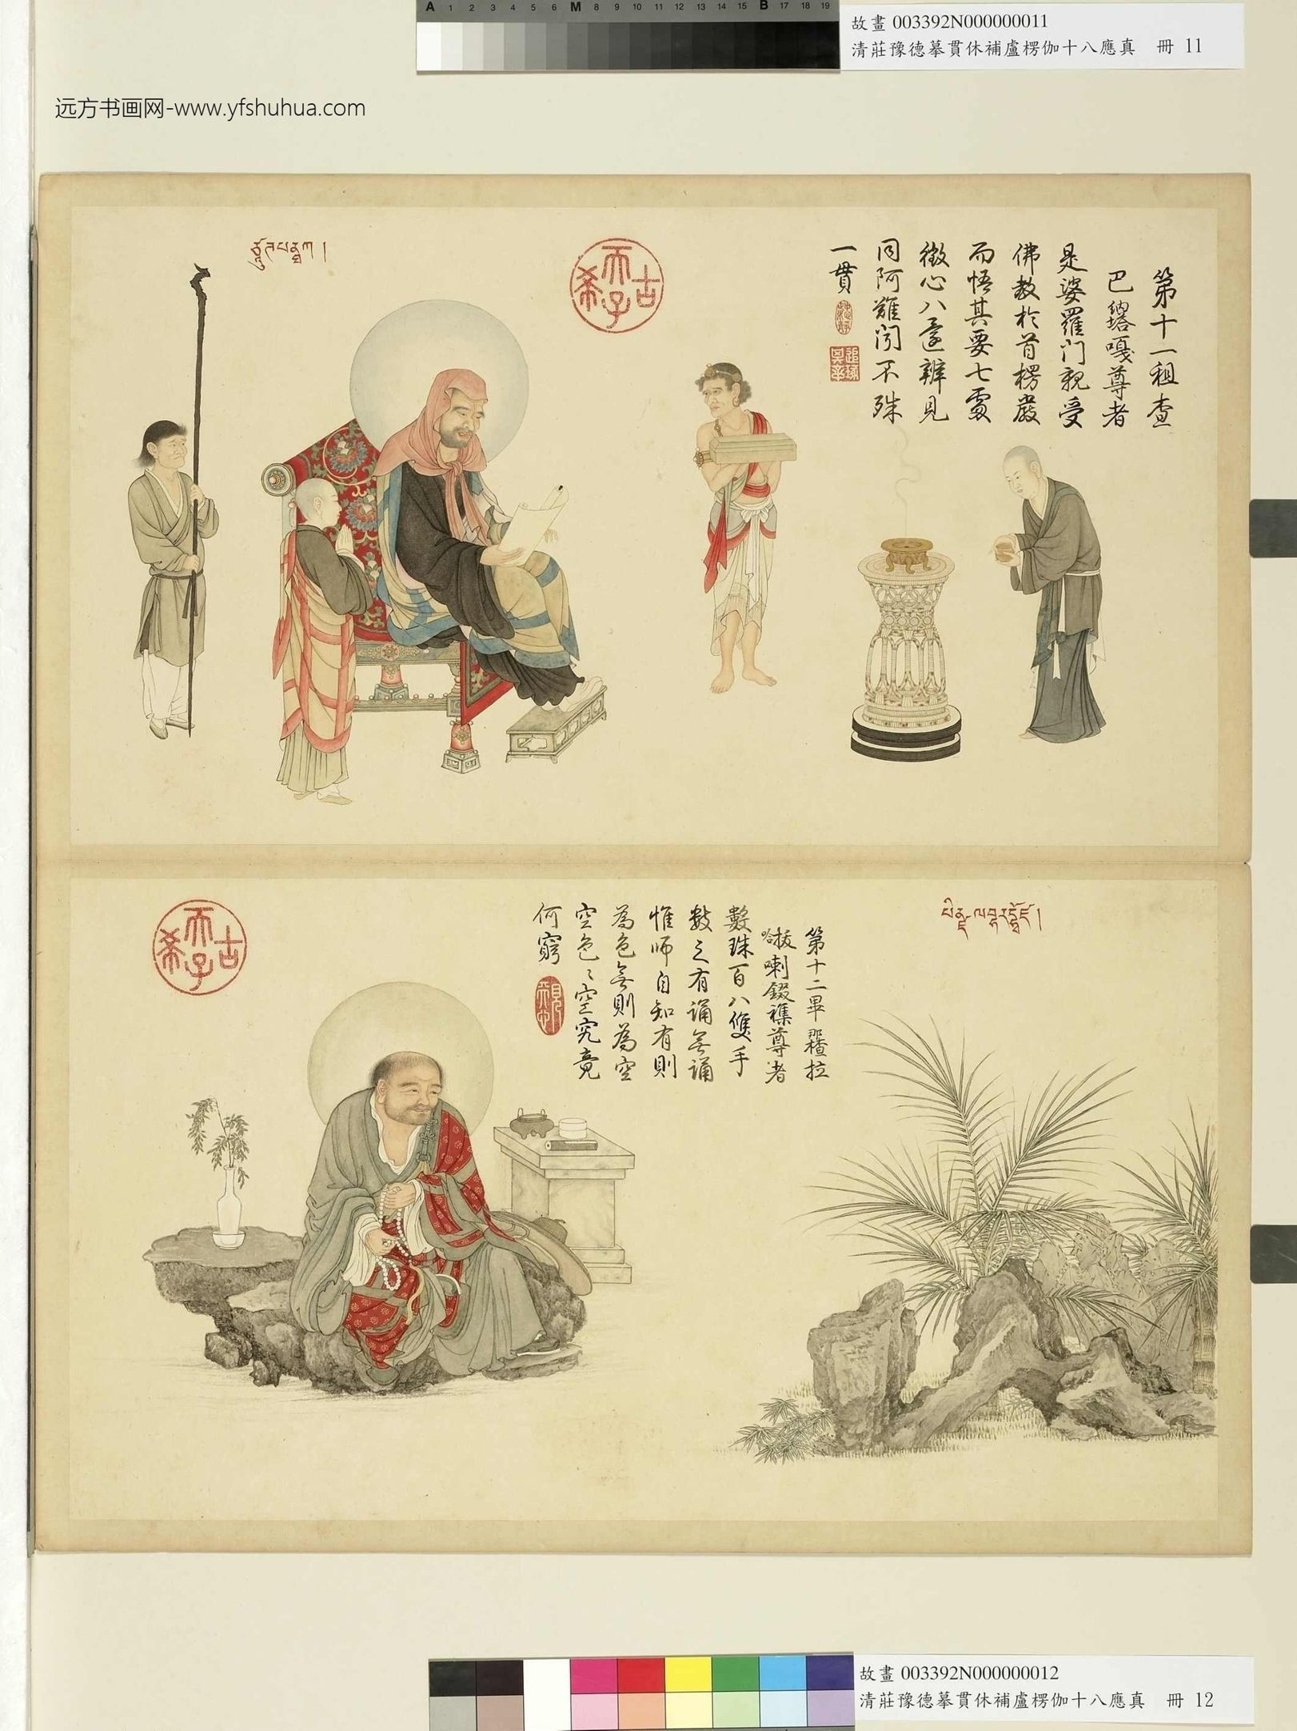 A 1 2 3 4 5 6 M 8 9 10 11 12 13 14 15 B 17 18 19
故畫 003392N000000011
清莊豫德摹貫休補盧楞伽十八應真 冊 11
远方书画网-www.yfshuhua.com
第十一租查
巴納塔嘎尊者
是婆羅門親受
佛教於首楞嚴
而悟其要七處
徵心八還辨見
同阿難聞不殊
一貫
古
希
天
子
第十二畢
拉
拔哈喇鍐襍尊者
數珠百八雙手
數之有誦無誦
惟師自知有則
為色無則為空
空色色空究竟
何窮
古
希
天
子
故畫 003392N000000012
清莊豫德摹貫休補盧楞伽十八應真 冊 12